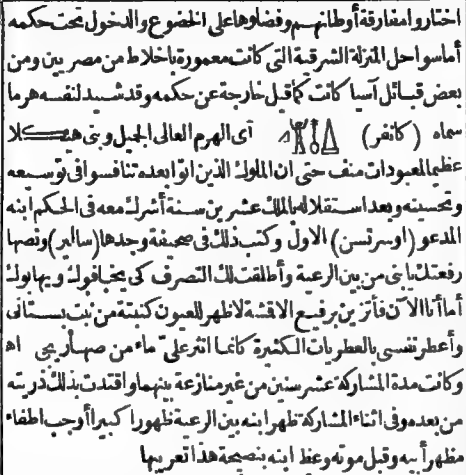 اختاروا مفارقة أوطانهم وفضلوها على الخضوع والدخول تحت حكمه
أما سواحل المنزلة الشرقية التى كانت معمورة باخلاط من مصريين ومن
بعض قبائل آسيا كانت كما قيل خارجة عن حكمه وقد شيد لنفسه هرما
سماه (كانفر) أى الهرم العالى الجميل وبنى هيكلا
عظيما لمعبودات منف حتى ان الملوك الذين اتوا بعده تنافسوا فى توسيعه
وتحسينه وبعد استقلاله بالملك عشرين سنة أشرك معه فى الحكم ابنه
المدعو (اوسرتسن) الاول وكتب ذلك فى صحيفة وجدها (سالير) ونصها
رفعتك يا بنى من بين الرعية وأطلقت لك التصرف كى يخافوك ويهابوك
أما أنا الآن فأتزين برفيع الاقشة لاظهر للعيون كنبتة من نبت بستانى
وأعطر نفسى بالعطريات الكثيرة كأنما انثر علىّ ماء من صهاريجى اه
وكانت مدة المشاركة عشر سنين من غير منازعة بينهما واقتدت بذلك ذريته
من بعده وفى اثناء المشاركة ظهر ابنه بين الرعية ظهورا كبيرا أوجب اطفاء
مظهر أبيه وقبل موته وعظ ابنه بنصيحة هذا تعريبها